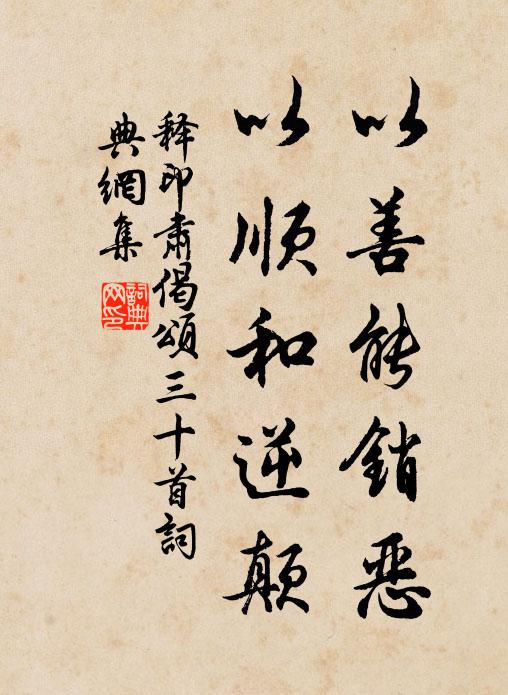 以善能銷惡
以順和逆顛
释印肅偈頌三十首詞
典網集
詞典
网印